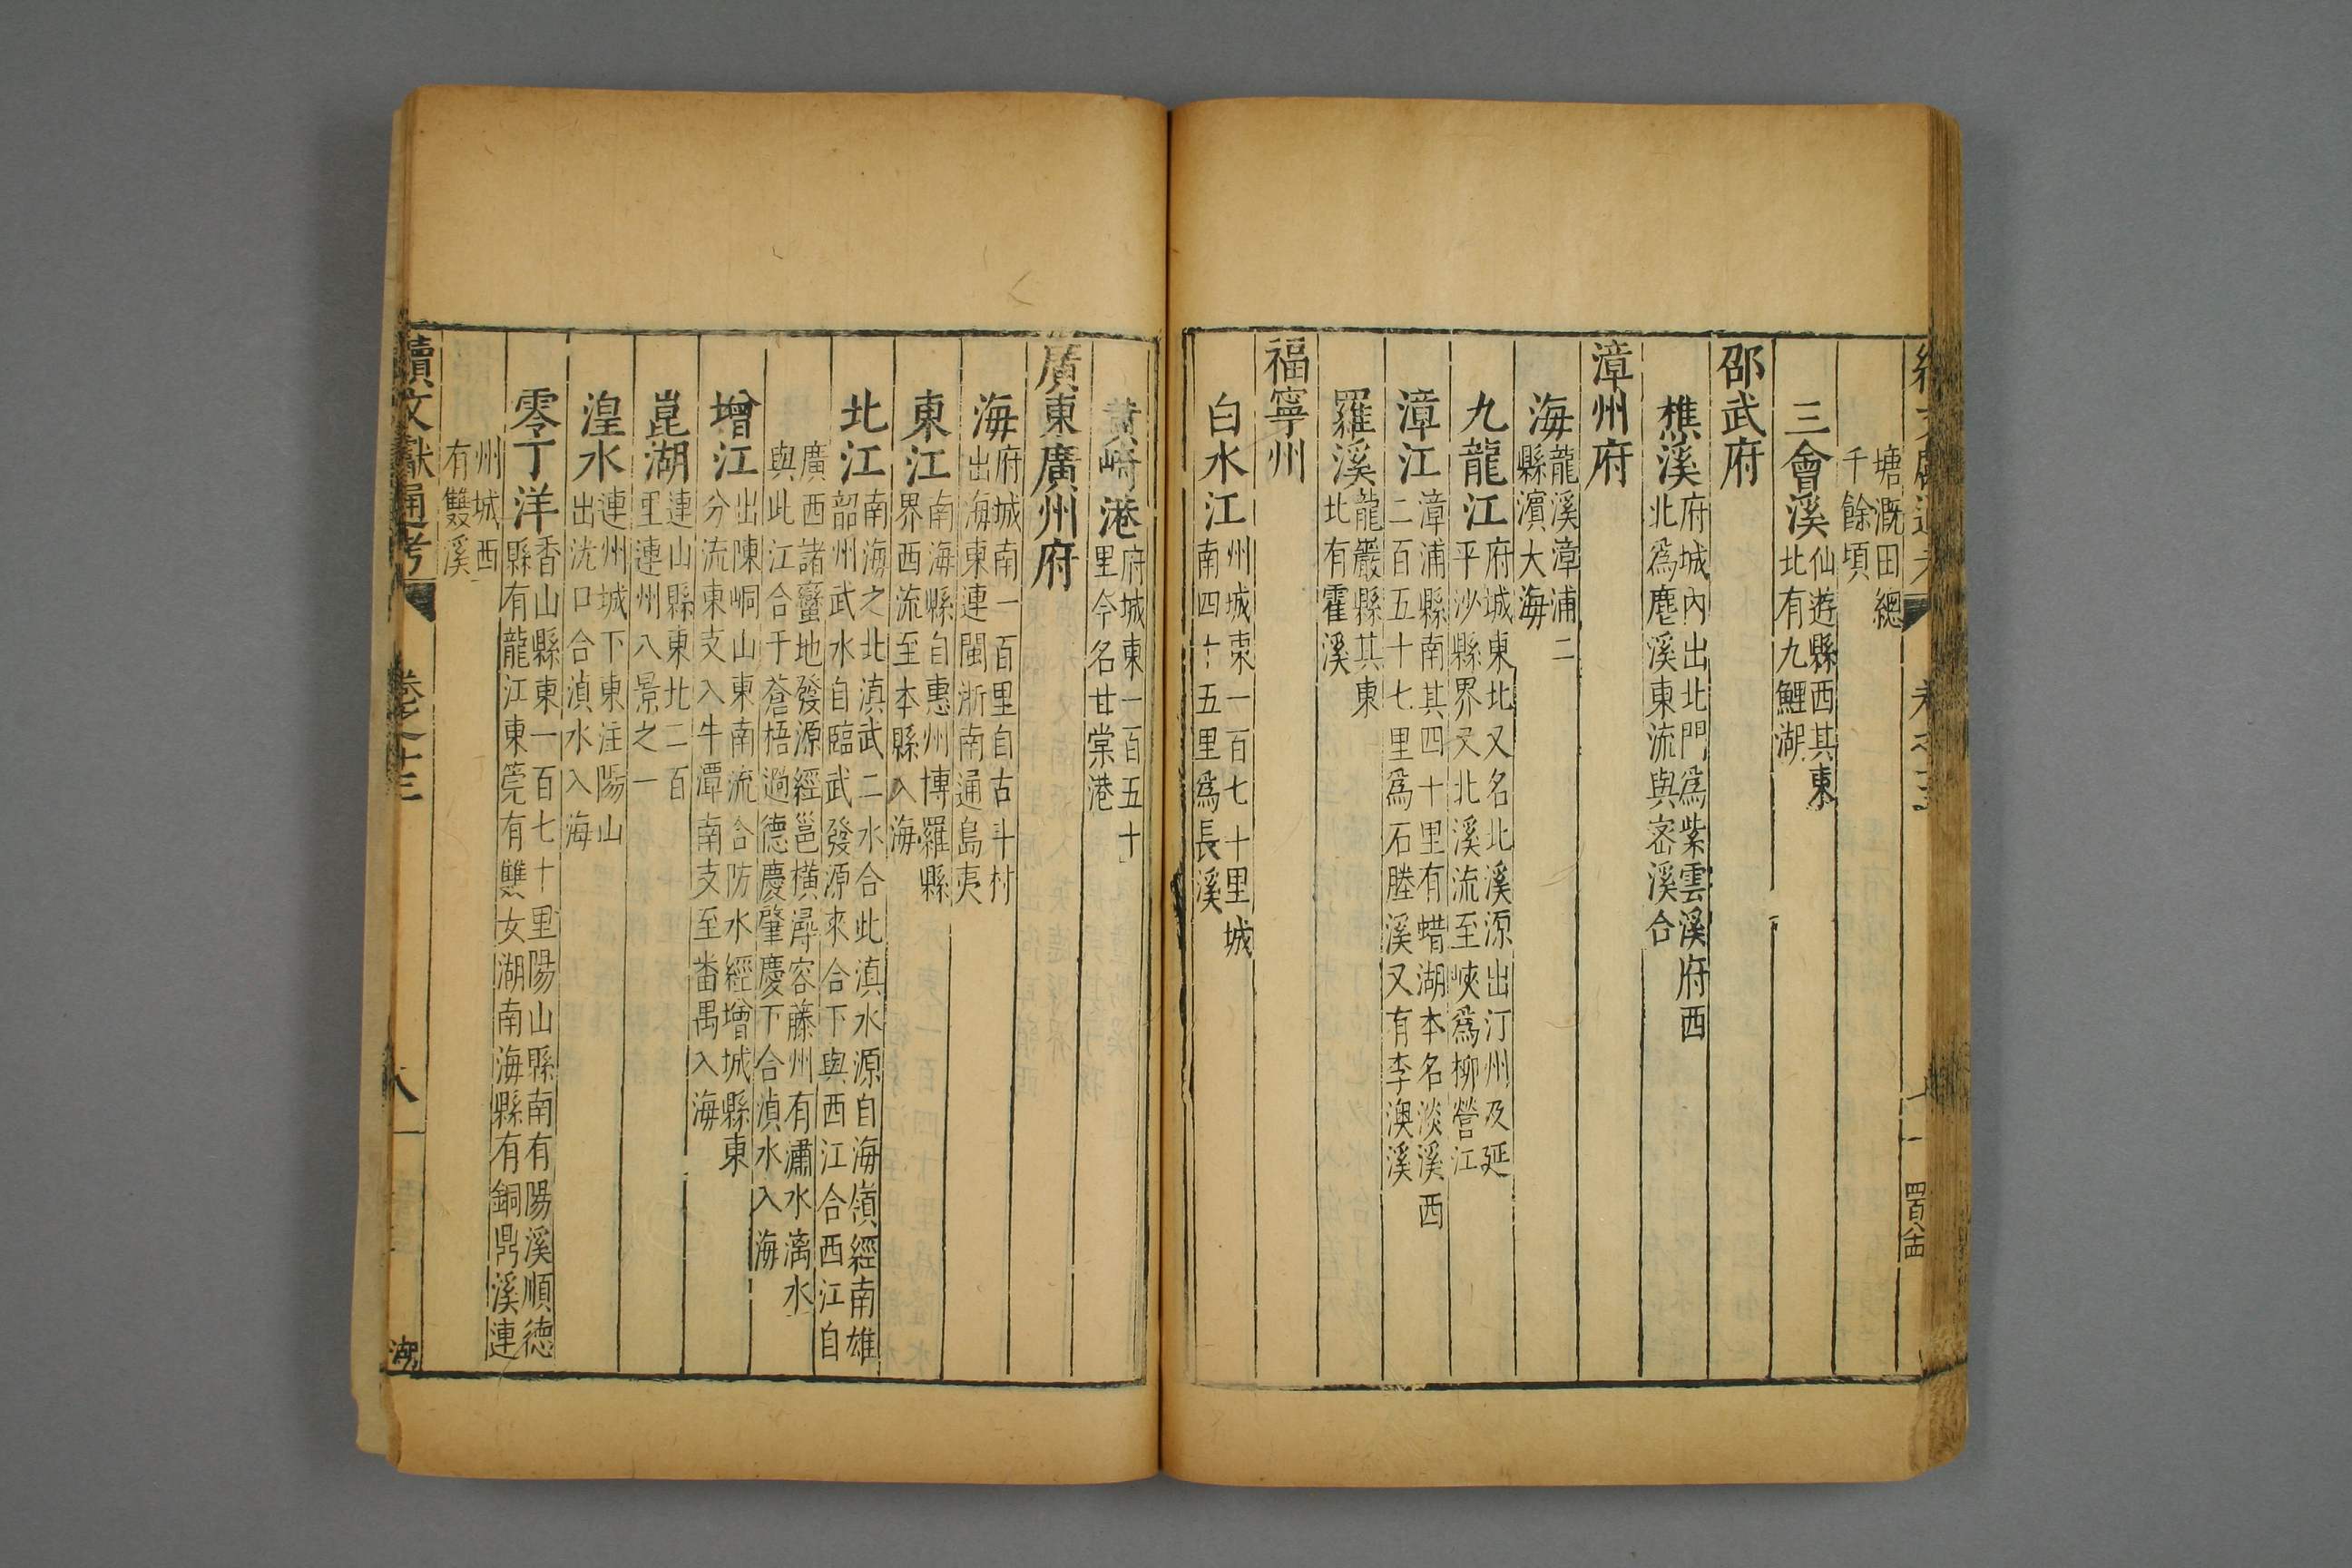 塘溉田總千餘頃
三會溪仙遊縣西其東北有九鯉湖
邵武府
樵溪府城內出北門爲紫雲溪府西北爲鹿溪東流與密溪合
漳州府
海龍溪漳浦二縣濵大海
九龍江府城東北又名北溪源出汀州及延平沙縣界又北溪流至峽爲柳營江
漳江漳浦縣南其四十里有蜡湖本名淡溪西二百五十七里爲石塍溪又有李澳溪
羅溪龍巖縣其東北有霍溪
福寧州
白水江州城東一百七十里城南四十五里爲長溪
黄崎港府城東一百五十里今名甘棠港
廣東廣州府
海府城南一百里自古斗村出海東連閩浙南通島夷
東江南海縣自惠州博羅縣界西流至本縣入海
北江南海之北滇武二水合此滇水源自海嶺經南雄韶州武水自臨武發源來合下與西江合西江自
廣西諸蠻地發源經邕橫潯容藤州有潚水漓水與此江合于蒼梧過德慶肇慶下合湞水入海
增江出陳峒山東南流合防水經增城縣東分流東支入牛潭南支至番禺入海
崑湖連山縣東北二百里連州八景之一
湟水連州城下東注陽山出洸口合湞水入海
零丁洋香山縣東一百七十里陽山縣南有陽溪順徳縣有龍江東筦有雙女湖南海縣有銅鼎溪連
州城西有雙溪
續文獻通考 卷之十三 八